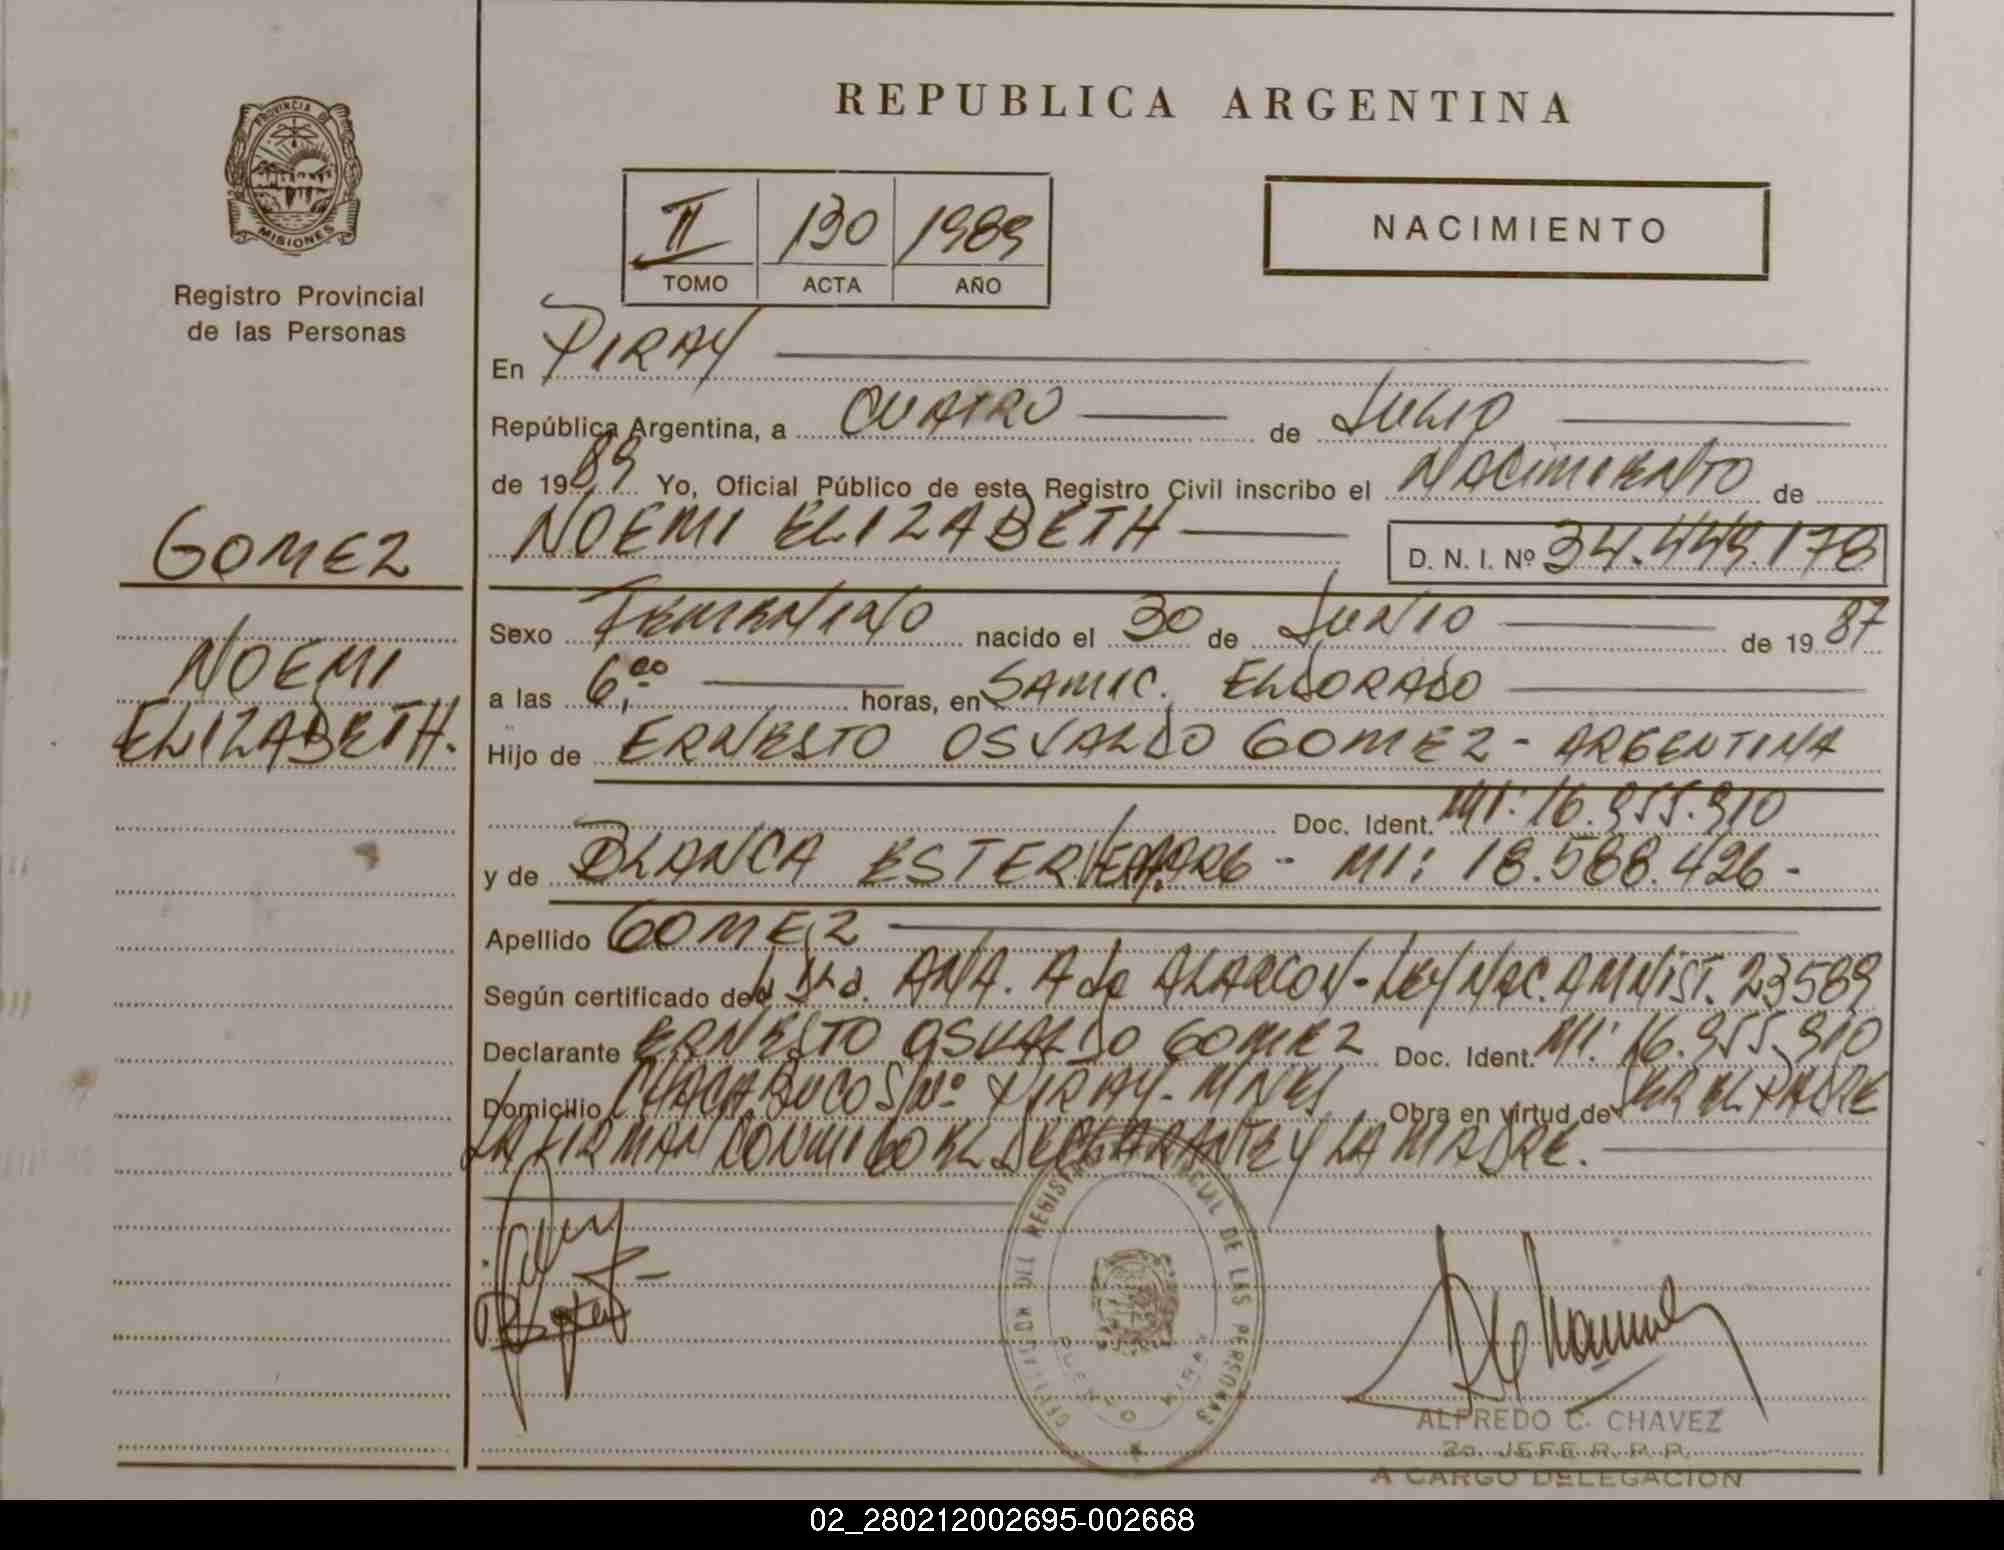 PROVINCIA DE
MISIONES
Registro Provincial
de las Personas
GOMEZ
NOEMI
ELIZABETH.
REPUBLICA ARGENTINA
II 130 1989
TOMO ACTA AÑO
NACIMIENTO
En PIRAY
República Argentina, a CUATRO de JULIO
de 1989 Yo, Oficial Público de este Registro Civil inscribo el NACIMIENTO de
NOEMI ELIZABETH D. N. I. Nº 34.449.178
Sexo FEMENINO nacido el 30 de JUNIO de 1987
a las 6,00 horas, en SAMIC. ELDORADO
Hijo de ERNESTO OSVALDO GOMEZ - ARGENTINA
Doc. Ident. MI: 16.955.910
y de BLANCA ESTER - MI: 18.588.426 -
Apellido GOMEZ
Según certificado de la Dra. ANA. Ada ALARCON - LEY NAC. AMNIST. 23589
Declarante ERNESTO OSVALDO GOMEZ Doc. Ident. MI: 16.955.910
Domicilio CHACABUCO S/Nº PIRAY - MNES Obra en virtud de SER EL PADRE
LA FIRMAN CONMIGO EL DECLARANTE Y LA MADRE.
DELEGACION DEL REGISTRO DE LAS PERSONAS
PUERTO PIRAY
ALFREDO C. CHAVEZ
2o. JEFE R. P. P.
A CARGO DELEGACION
02_280212002695-002668